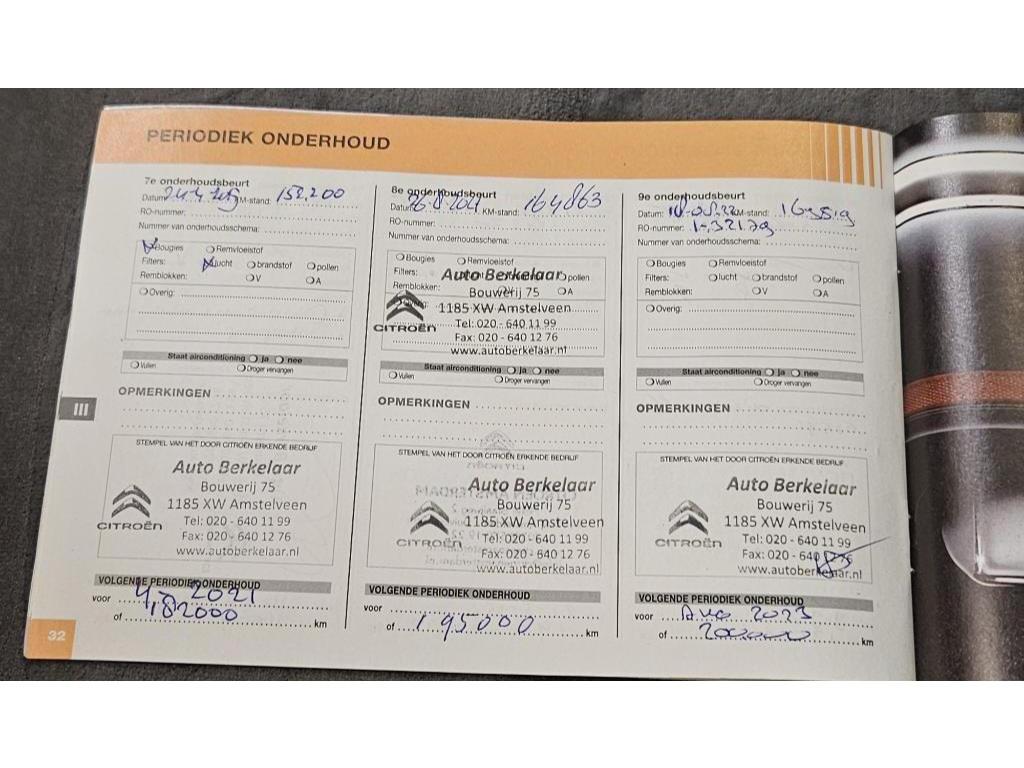 PERIODIEK ONDERHOUD
7e onderhoudsbeurt
Datum: KM-stand: 152.200
RO-nummer:
Nummer van onderhoudsschema:
Bougies Remvloeistof
Filters: lucht brandstof pollen
Remblokken: V A
Overig:
Staat airconditioning ja nee
Vullen Droger vervangen
OPMERKINGEN
STEMPEL VAN HET DOOR CITROËN ERKENDE BEDRIJF
Auto Berkelaar
Bouwerij 75
1185 XW Amstelveen
CITROËN
Tel: 020 - 640 11 99
Fax: 020 - 640 12 76
www.autoberkelaar.nl
VOLGENDE PERIODIEK ONDERHOUD
voor 4-2021
of 182000 km
8e onderhoudsbeurt
Datum: 26-8-2021 KM-stand: 164863
RO-nummer:
Nummer van onderhoudsschema:
Bougies Remvloeistof
Filters: pollen
Auto Berkelaar
Remblokken: A
Bouwerij 75
Overig:
1185 XW Amstelveen
CITROËN
Tel: 020 - 640 11 99
Fax: 020 - 640 12 76
www.autoberkelaar.nl
Staat airconditioning ja nee
Vullen Droger vervangen
OPMERKINGEN
STEMPEL VAN HET DOOR CITROËN ERKENDE BEDRIJF
Auto Berkelaar
Bouwerij 75
1185 XW Amstelveen
CITROËN
Tel: 020 - 640 11 99
Fax: 020 - 640 12 76
www.autoberkelaar.nl
VOLGENDE PERIODIEK ONDERHOUD
voor
of 195000 km
9e onderhoudsbeurt
Datum: KM-stand:
RO-nummer:
Nummer van onderhoudsschema:
Bougies Remvloeistof
Filters: lucht brandstof pollen
Remblokken: V A
Overig:
Staat airconditioning ja nee
Vullen Droger vervangen
OPMERKINGEN
STEMPEL VAN HET DOOR CITROËN ERKENDE BEDRIJF
Auto Berkelaar
Bouwerij 75
1185 XW Amstelveen
CITROËN
Tel: 020 - 640 11 99
Fax: 020 - 640 12 76
www.autoberkelaar.nl
VOLGENDE PERIODIEK ONDERHOUD
voor 2023
of 200.000 km
III
32